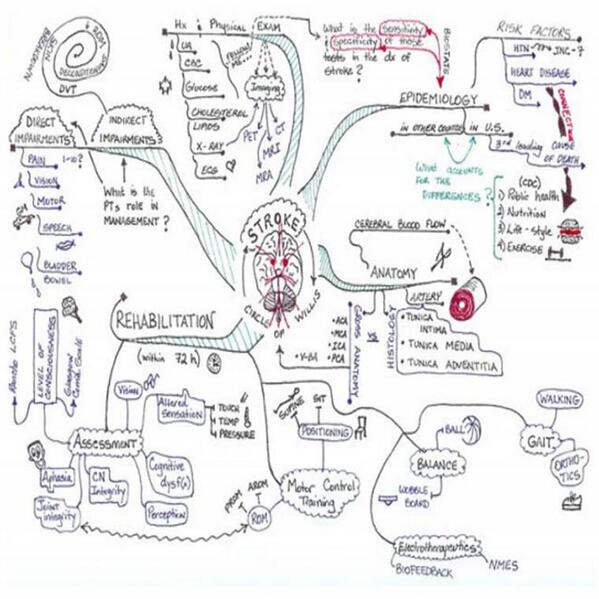 STROKE
CIRCLE OF WILLIS
Hx & Physical EXAM
UA
CBC
Glucose
CHOLESTEROL
LIPIDS
X-RAY
ECG
Imaging
PET
CT
MRI
MRA
What is the sensitivity
specificity of those
tests in the dx of
stroke?
BIOSTATS
EPIDEMIOLOGY
in OTHER COUNTRIES
in U.S.
What accounts
FOR THE
DIFFERENCES?
RISK FACTORS
HTN
JNC-7
HEART DISEASE
DM
CONNECTION
3rd leading CAUSE
OF DEATH
(CDC)
1) Public health
2) Nutrition
3) Life-style
4) EXERCISE
CEREBRAL BLOOD FLOW
ANATOMY
ARTERY
• TUNICA
INTIMA
• TUNICA MEDIA
• TUNICA ADVENTITIA
HISTOLOGY
GROSS ANATOMY
• ACA
• MCA
• ICA
• PCA
• V-BA
DECONDITIONING
DVT
DIRECT
IMPAIRMENTS
INDIRECT
IMPAIRMENTS
PAIN 1-10?
VISION
MOTOR
SPEECH
BLADDER
BOWEL
What is the
PTs role in
MANAGEMENT?
REHABILITATION
(within 72 h)
Rancho LCFS
LEVEL OF
CONSCIOUSNESS
Glasgow
Coma Scale
Assessment
Vision
Altered
Sensation
TOUCH
TEMP
PRESSURE
Aphasia
CN
Integrity
Cognitive
dysf(x)
Perception
Joint
integrity
PROM
AROM
ROM
Motor Control
Training
POSITIONING
SUPINE
SIT
BALANCE
BALL
WOBBLE
BOARD
GAIT
WALKING
ORTHO-
TICS
Electrotherapeutics
BIOFEEDBACK
NMES